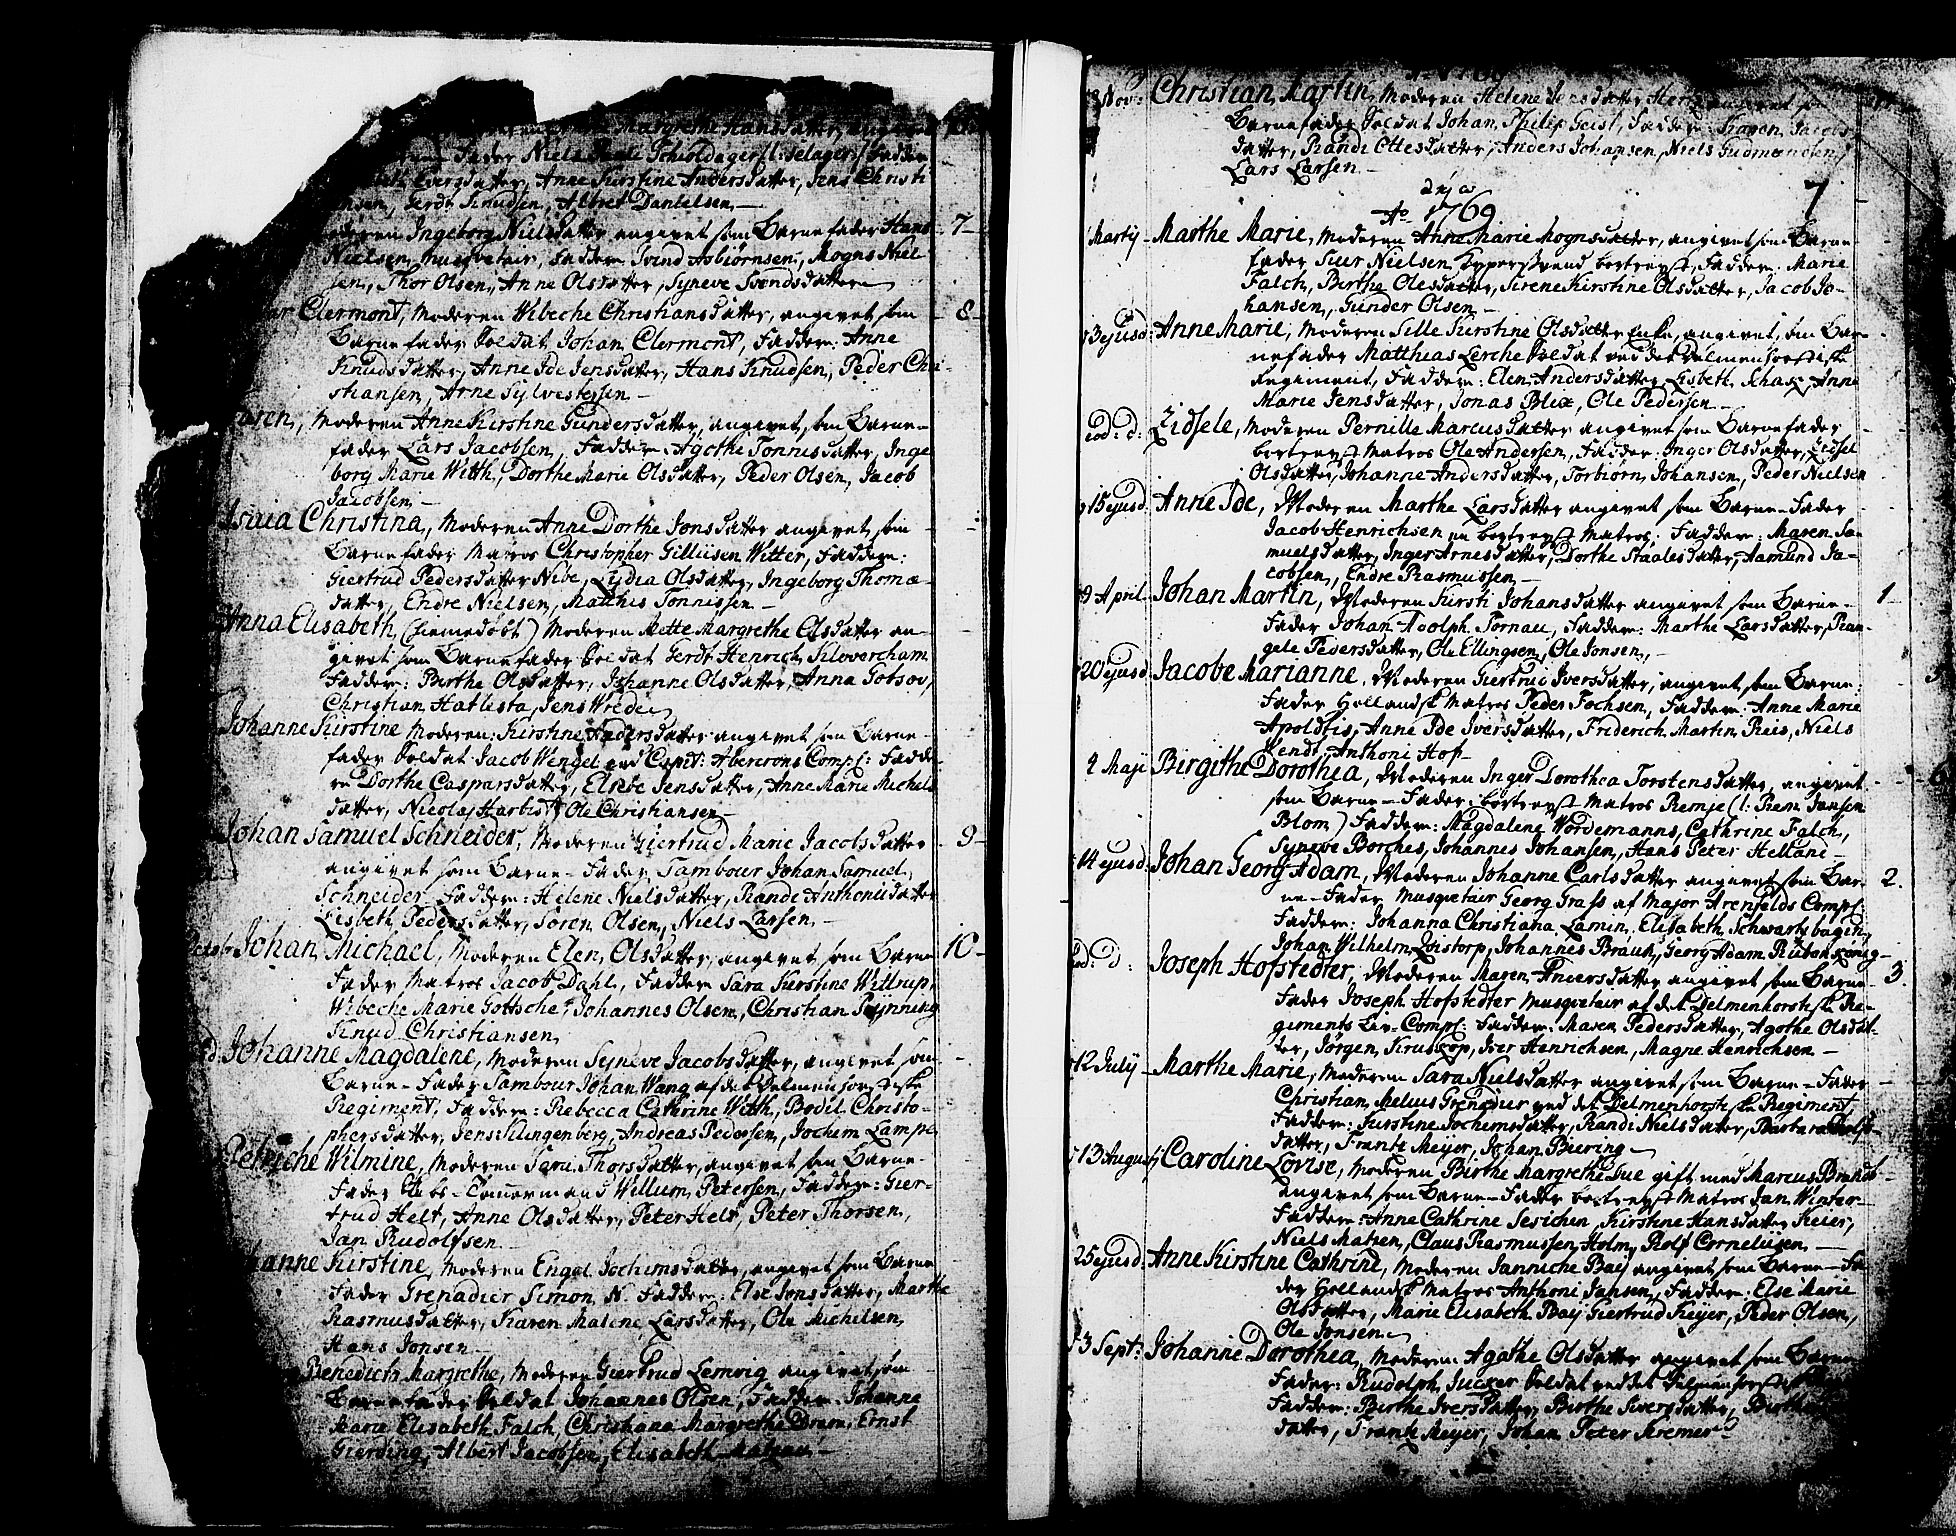 Margrethe Hansdatter, angivet
Fader Niels
datter, Anne Kirstine Andersdatter, Jens Christi
Gerdt Knudsen, Albret Danielsen
Ingeborg Nielsdatter angivet som Barnefader Hans 7
Nielsen, Musqvetair, Faddere Svend Asbiørnsen, Mogns Niel
sen, Thor Olsen, Anne Olsdatter, Syneve Svendsdatter
Clermont, Moderen Wibeche Christiansdatter, angivet som 8
Barnefader Soldat Johan Clermont, Faddere: Anne
Knudsdatter, Anne Ide Jensdatter, Hans Knudsen, Peder Chri
stiansen, Arne Sylvestersen
aren, Moderen Anne Kirstine Gundersdatter, angivet som Barne
fader Lars Jacobsen, Faddere Agothe Tønnisdatter, Inge
borg Marie Witth, Dorthe Marie Olsdatter, Peder Olsen, Jacob
Jacobsen
Isaia Christina, Moderen Anne Dorthe Jonsdatter angivet som
Barnefader Matros Christopher Gilliisen Witter, Faddere:
Giertrud Pedersdatter Nibe, Lydia Olsdatter, Ingeborg Thomæ
datter, Endre Nielsen, Matthis Tonnissen
Anna Elisabeth (hiemedøbt) Moderen Mette Margrethe Olsdatter an
givet som Barnefader Soldat Gerdt Henrich Kloverckam
Faddere: Birthe Olsdatter, Johanne Olsdatter, Anna Gotsov,
Christian Hatlesta, Jens Wrede
Johanne Kirstine Moderen: Kirstine Andersdatter angivet som Barne
fader Soldat Jacob Wengel ved Capit: Abercrons Comp: Fadde
re Dorthe Caspersdatter, Elsebe Jensdatter, Anne Marie Michels
datter, Nicolaj Harbist, Ole Christiansen
Johan Samuel Schneider, Moderen Giertrud Marie Jacobsdatter 9
angivet som Barne-Fader Tambour Johan Samuel
Schneider, Faddere: Helene Nielsdatter, Randi Anthonisdatter
Lisbeth Pedersdatter, Søren Olsen, Niels Larsen
Johan Michael, Moderen Elen Olsdatter, angivet som Barne 10
Fader Matros Jacob Dahl, Faddere Sara Kirstine Wittrup,
Wibeche Marie Gottsche, Johannes Olsen, Christian Rynning
Knud Christiansen
Johanne Magdalene, Moderen Syneve Jacobsdatter, angivet som
Barne-Fader Tambour Johan Wang af det Delmenhorstske
Regiment, Faddere: Rebecca Cathrine Witth, Bodil Christo-
phersdatter, Jens Klingenberg, Andreas Pedersen, Jochim Lampe
Petriche Wilmine, Moderen Sara Thorsdatter, angivet som Barne
Fader Skibs-Tømermand Willum Petersen, Faddere: Gier-
trud Helt, Anne Olsdatter, Peter Helt, Peter Thorsen,
Jan Rudolfsen
anne Kirstine, Moderen Engel Jochimsdatter, angivet som Barne
Fader Grenadier Simon N. Faddere: Else Jonsdatter, Marthe
Rasmusdatter, Karen Malene Larsdatter, Ole Michelsen,
Hans Jonsen
Benedicte Margrethe, Moderen Giertrud Lemvig angivet som
Barnefader Soldat Johannes Olsen, Faddere: Johanne
Marie Elisabeth Falch, Christiana Margrethe Dram, Ernst
Gierding, Albert Jacobsen, Elisabeth
Nov: Christian Martin, Moderen Helene angivet som
Barnefader Soldat Johan Philip Geist, Faddere: Karen Jacobs
datter, Randi Ottesdatter, Anders Johansen, Niels Gudmandsen
Lars Larsen
7
Ao 1769
Martij Marthe Marie, Moderen Anne Marie Mognsdatter, angivet som Barne
fader Siur Nielsen bortreyst, Faddere: Marie
Falch, Birthe Olesdatter, Sirene Kirstine Olsdatter, Jacob Jo-
hansen, Gunder Olsen
13 ejusd: Anne Marie, Moderen Sille Kirstine Olsdatter Enke, angivet som Bar
nefader Matthias Lerche Soldat ved det Delmenhorstiske
Regiment, Faddere: Elen Andersdatter, Lisbeth Schax, Anne
Marie Jensdatter, Jonas Blix, Ole Pedersen
eod: d: Zidsele, Moderen Pernille Marcusdatter angivet som Barnefader
bortreyst Matros Ole Andersen, Faddere: Inger Olsdatter, Zidsel
Olsdatter, Johanne Andersdatter, Torbiørn Johansen, Peder Nielsen
15 ejusd: Anne Ide, Moderen Marthe Larsdatter angivet som Barne-Fader
Jacob Henrichsen en bortreyst Matros, Faddere: Maren Sa-
muelsdatter, Inger Arnesdatter, Dorthe Staalesdatter, Aamund Ja-
cobsen, Endre Rasmussen
9 April Johan Martin, Moderen Kirsti Johansdatter angivet som Barne- 1
Fader Johan Adolph Tornau, Faddere: Marthe Larsdatter, Ran
gele Pedersdatter, Ole Ellingsen, Ole Jonsen,
20 ejusd: Jacobe Marianne, Moderen Giertrud Iversdatter, angivet som Barne
Fader Hollandsk Matros Peder Fochsen, Faddere: Anne Marie
Apoldtis, Anne Ide Iversdatter, Friderich Martin Reis, Niels
Wendt, Anthoni Hop
2 Maji Birgithe Dorothea, Moderen Inger Dorothea Torstensdatter, angivet
som Barne-Fader bortreyst Matros Remje (l: Rem Jansen
Blom) Faddere: Magdalene Wordemanns, Cathrine Falch,
Syneve Borches, Johannes Johansen, Hans Peter Helland
14 ejusd: Johan Georg Adam, Moderen Johanne Carlsdatter angivet som Bar 2.
ne-Fader Musqvetair Georg Grass af Major Arenfelds Comp:
Faddere: Johanna Christiana Lamin, Elisabeth Schwartzbagin,
Johan Wilhelm Zoistorp, Johannes Brauh, Georg Adam Rubankønig
eod: d: Joseph Hofstedter, Moderen Maren Aneersdatter angivet som Barne- 3.
Fader Joseph Hofstedter Musqvetair af det Delmenhorstske Re-
giments Liv-Comp: Faddere: Maren Pedersdatter, Agothe Olsdat-
ter, Jørgen Kruskop, Iver Henrichsen, Magne Henrichsen
12 Julij Marthe Marie, Moderen Sara Nielsdatter angivet som Barne-Fader
Christian Melius Grenadier ved det Delmenhorstske Regiment,
Faddere: Kirstine Jochumsdatter, Randi Nielsdatter, Barbara
datter, Frantz Meijer, Johan Biering
13 Augusti Caroline Lovise, Moderen Birthe Margrethe Due gift med Marcus Brandt
angivet som Barne-Fader bortreyst Matros Jan Winter
Faddere: Anne Cathrine Sesichen, Kirstine Hansdatter Keier,
Niels Matzen, Claus Rasmussen Holm, Rolf Cornelusen
25 ejusd: Anne Kirstine Cathrine, Moderen Janniche Baÿ angivet som Barne-Fa
der Hollandsk Matros Anthoni Jansen, Faddere: Else Marie
Olsdatter, Marie Elisabeth Baÿ, Giertrud Keijer, Peder Olsen,
Ole Jonsen
3 Sept: Johanne Dorothea, Moderen Agathe Olsdatter angivet som Barne
Fader: Rudolph Sucker Soldat ved det
Faddere: Birthe Iversdatter, Birthe Siversdatter, Birthe
datter, Frantz Meijer, Johan Peter Kremer